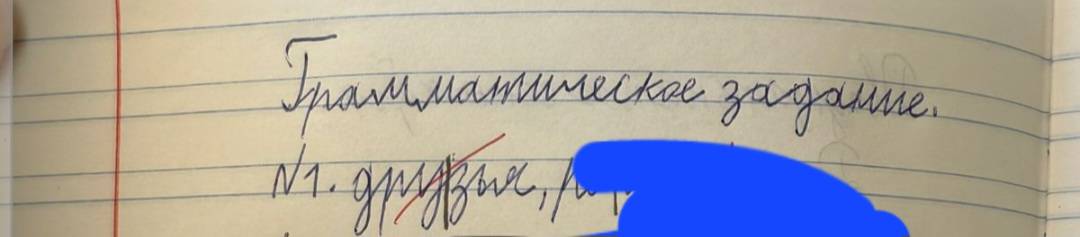 Грамматическое задание.
N1. друзья,